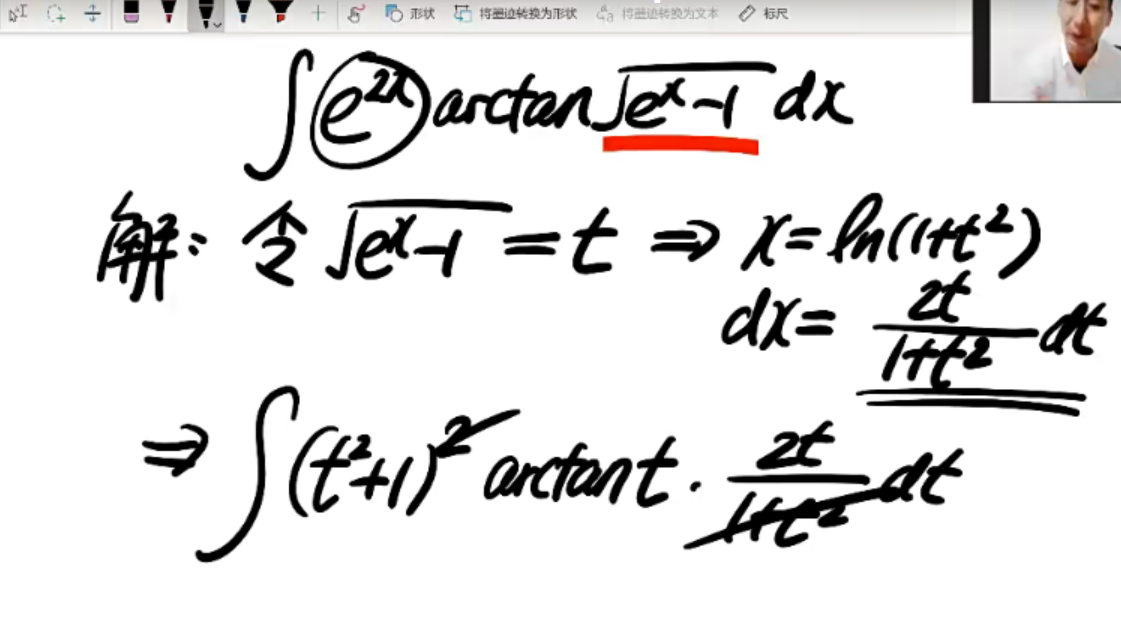 形状 将墨迹转换为形状 将墨迹转换为文本 标尺
∫ e^{2x} arctan √(e^x-1) dx
解: 令 √(e^x-1) = t ⇒ x = ln(1+t²)
dx = 2t/(1+t²) dt
⇒ ∫ (t²+1)² arctan t · 2t/(1+t²) dt